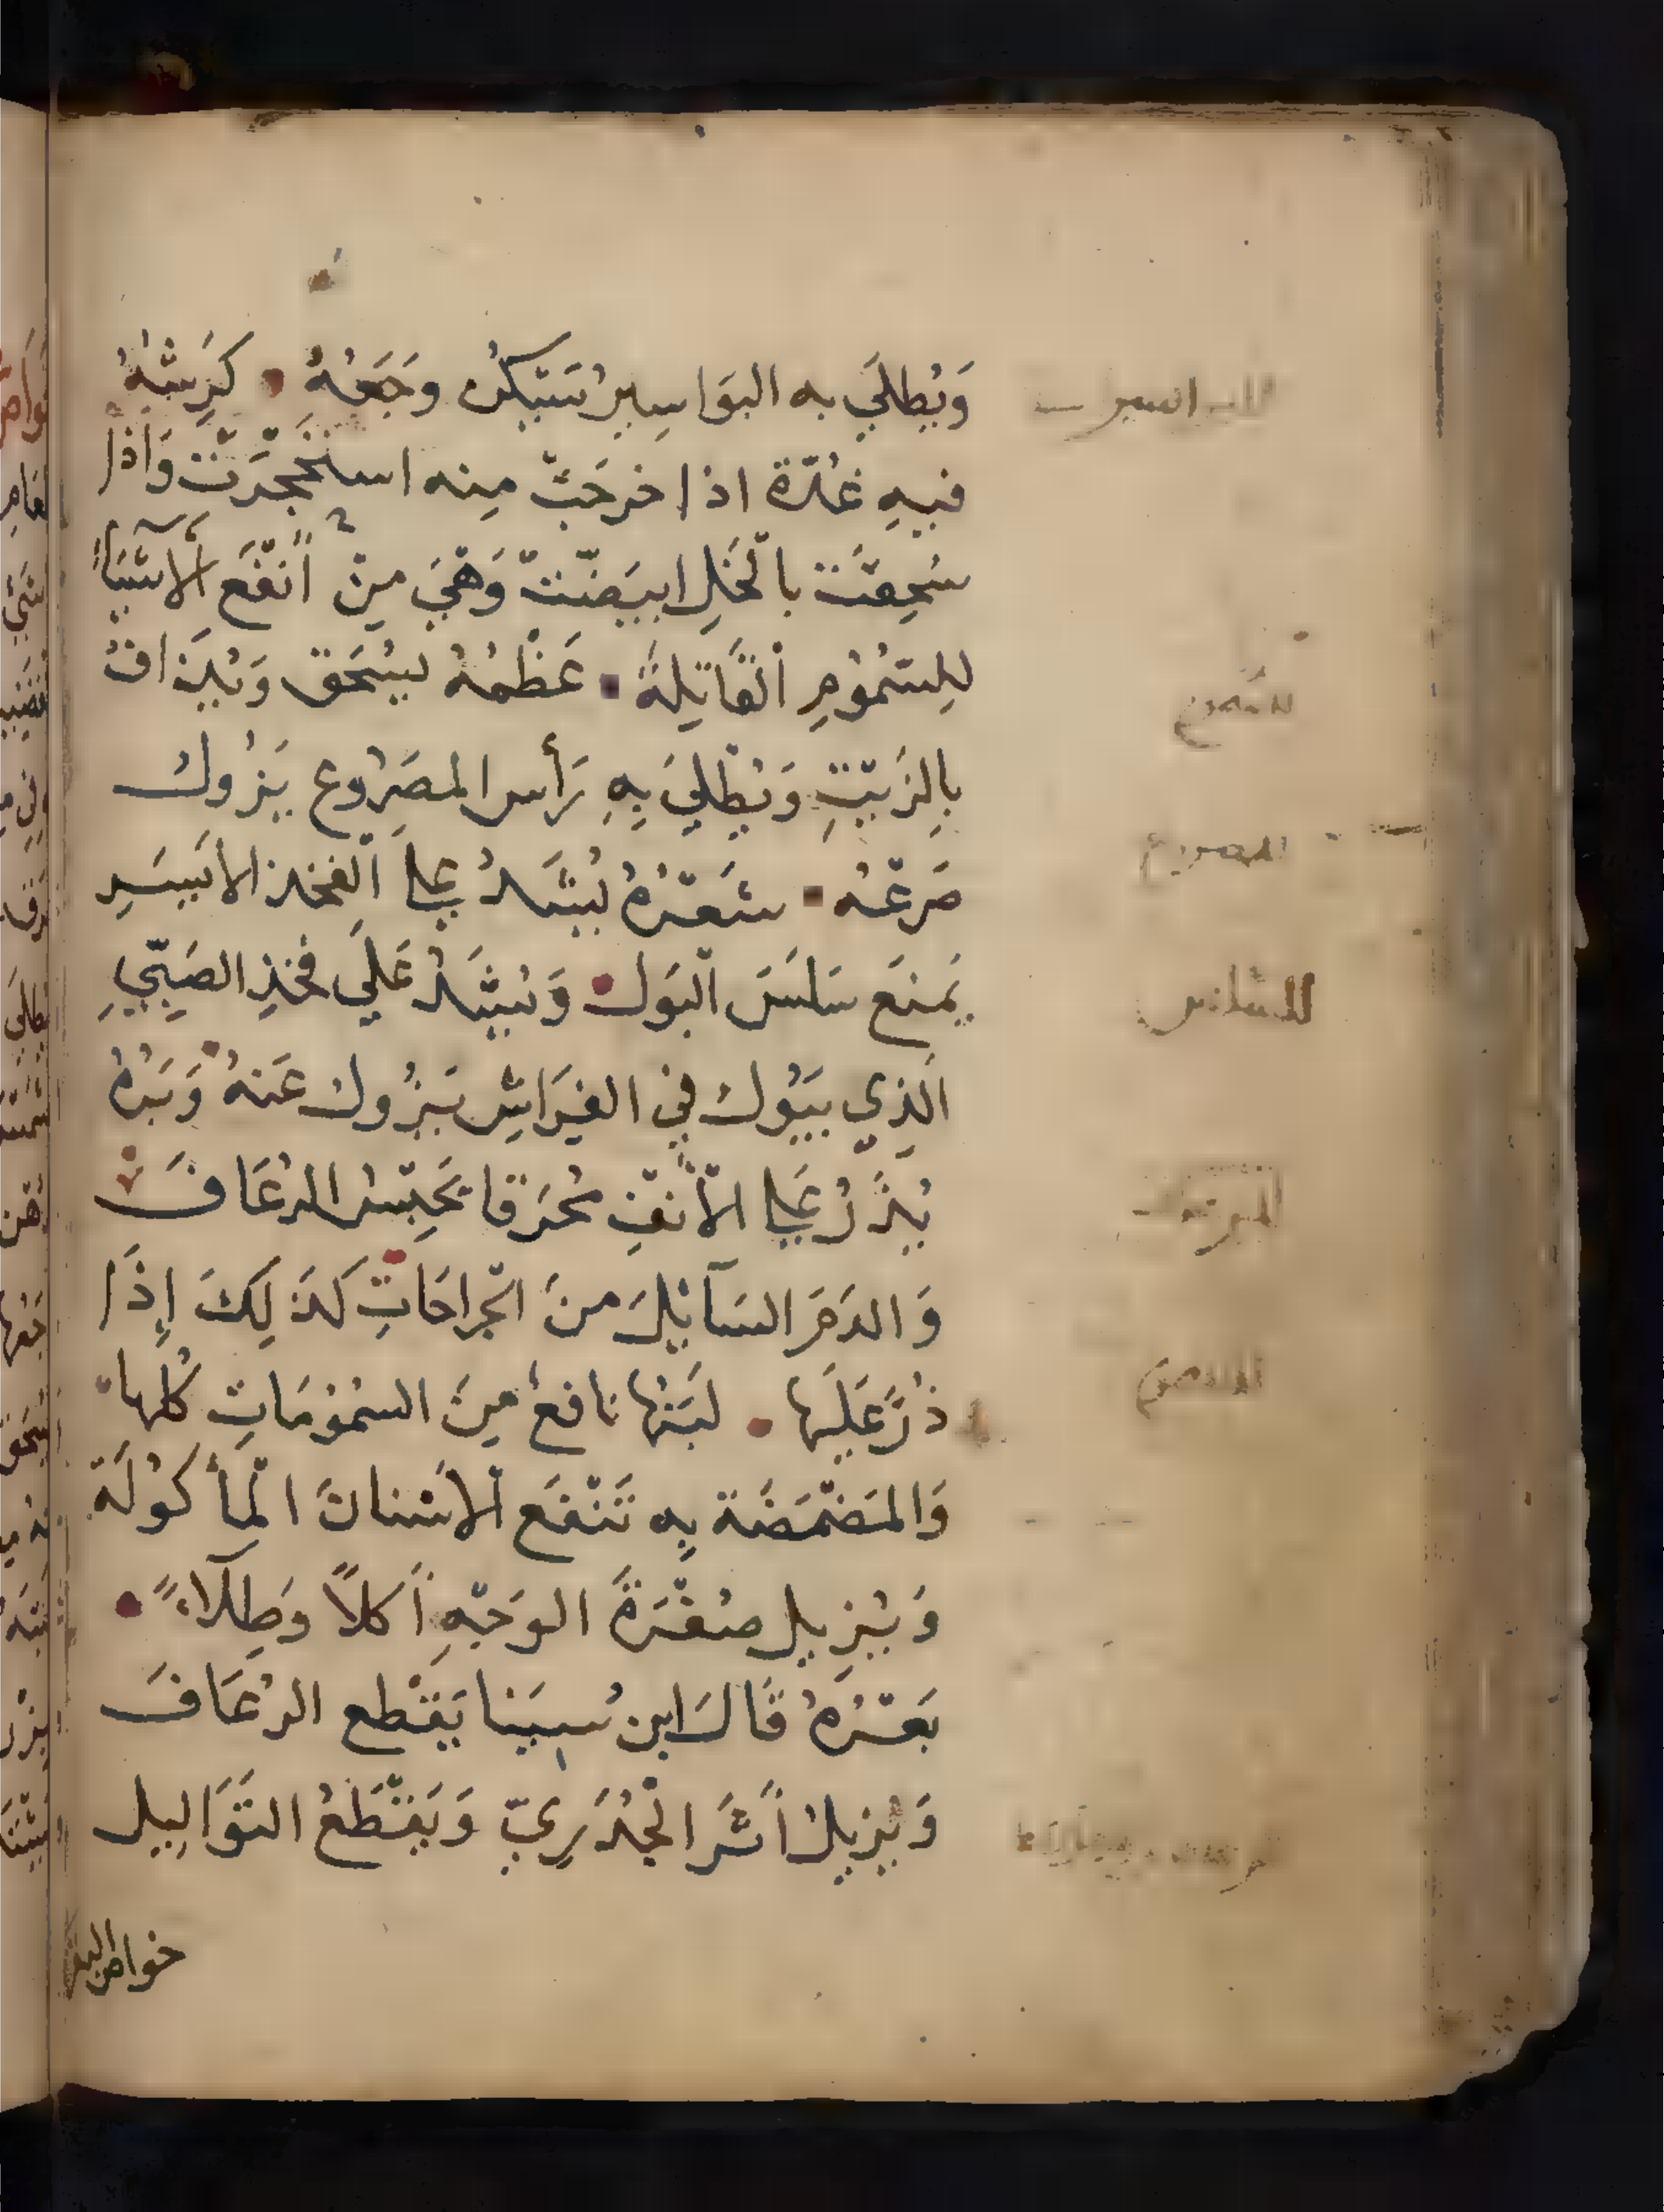 وَيُطلَي به البَوَاسِيرُ يُسَكِنُ وجَعَهُ ٠ كَرِشُهُ
فيهِ غُدّة اذا خرجَتْ مِنه استَحْجَرَتْ وَاذا
سُحِقَت بالْخَلِ ابيَضّتْ وَهْيَ مِنْ أَنفَع الأشيَآءِ
لِلسّمُوُمِ الْقَاتِلةَ ٠ عَظْمُهُ يُسْحَق وَيُذافُ
بِالزَيْتِ وَيُطْلَيَ بِهِ رَأس المصَرُوع يَزُولُ
صَرعُه ٠ شَعْرُهُ يُشَدُ علي الْفخذ الأَيسَرِ
يَمنَع سَلَسَ الْبَول ٠ وَيُشَدُ عَلَي فخذِ الصَبِيّ
الَذِي يَبُول في الفِرَاشِ يَزُول عَنهُ ٠ وَبَرُهُ
يُذَرُ عَلي الأَنفِ مُحرَقا يَحبِسُ الرعَافَ
وَالدَمَ السَآئِلَ منَ الجْراحَاتِ كَذَلِكَ إِذَا
ذُرَّ عَلَيها ٠ لَبَنُها نافعُ مِنَ السُمُومَاتِ كُلها
وَالمَضْمَضَة بِهِ تَنْفَع الأَسْنانَ الْمأكُولَةَ
وَيُزِيل صُفْرَةَ الوَجْهِ أَكلاً وَطِلآءً ٠
بَعْرُهُ قَالَ ابن سِينا يَقْطع الرعَافَ
وَيُزِيلُ أَثَرَ الْجُدَرِيّ وَيَقْطَعُ التَوَالِيل
خواص البقر
المصروع